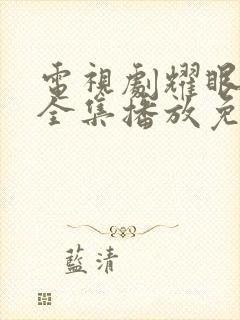 電視劇耀眼
全集播放免
藍清